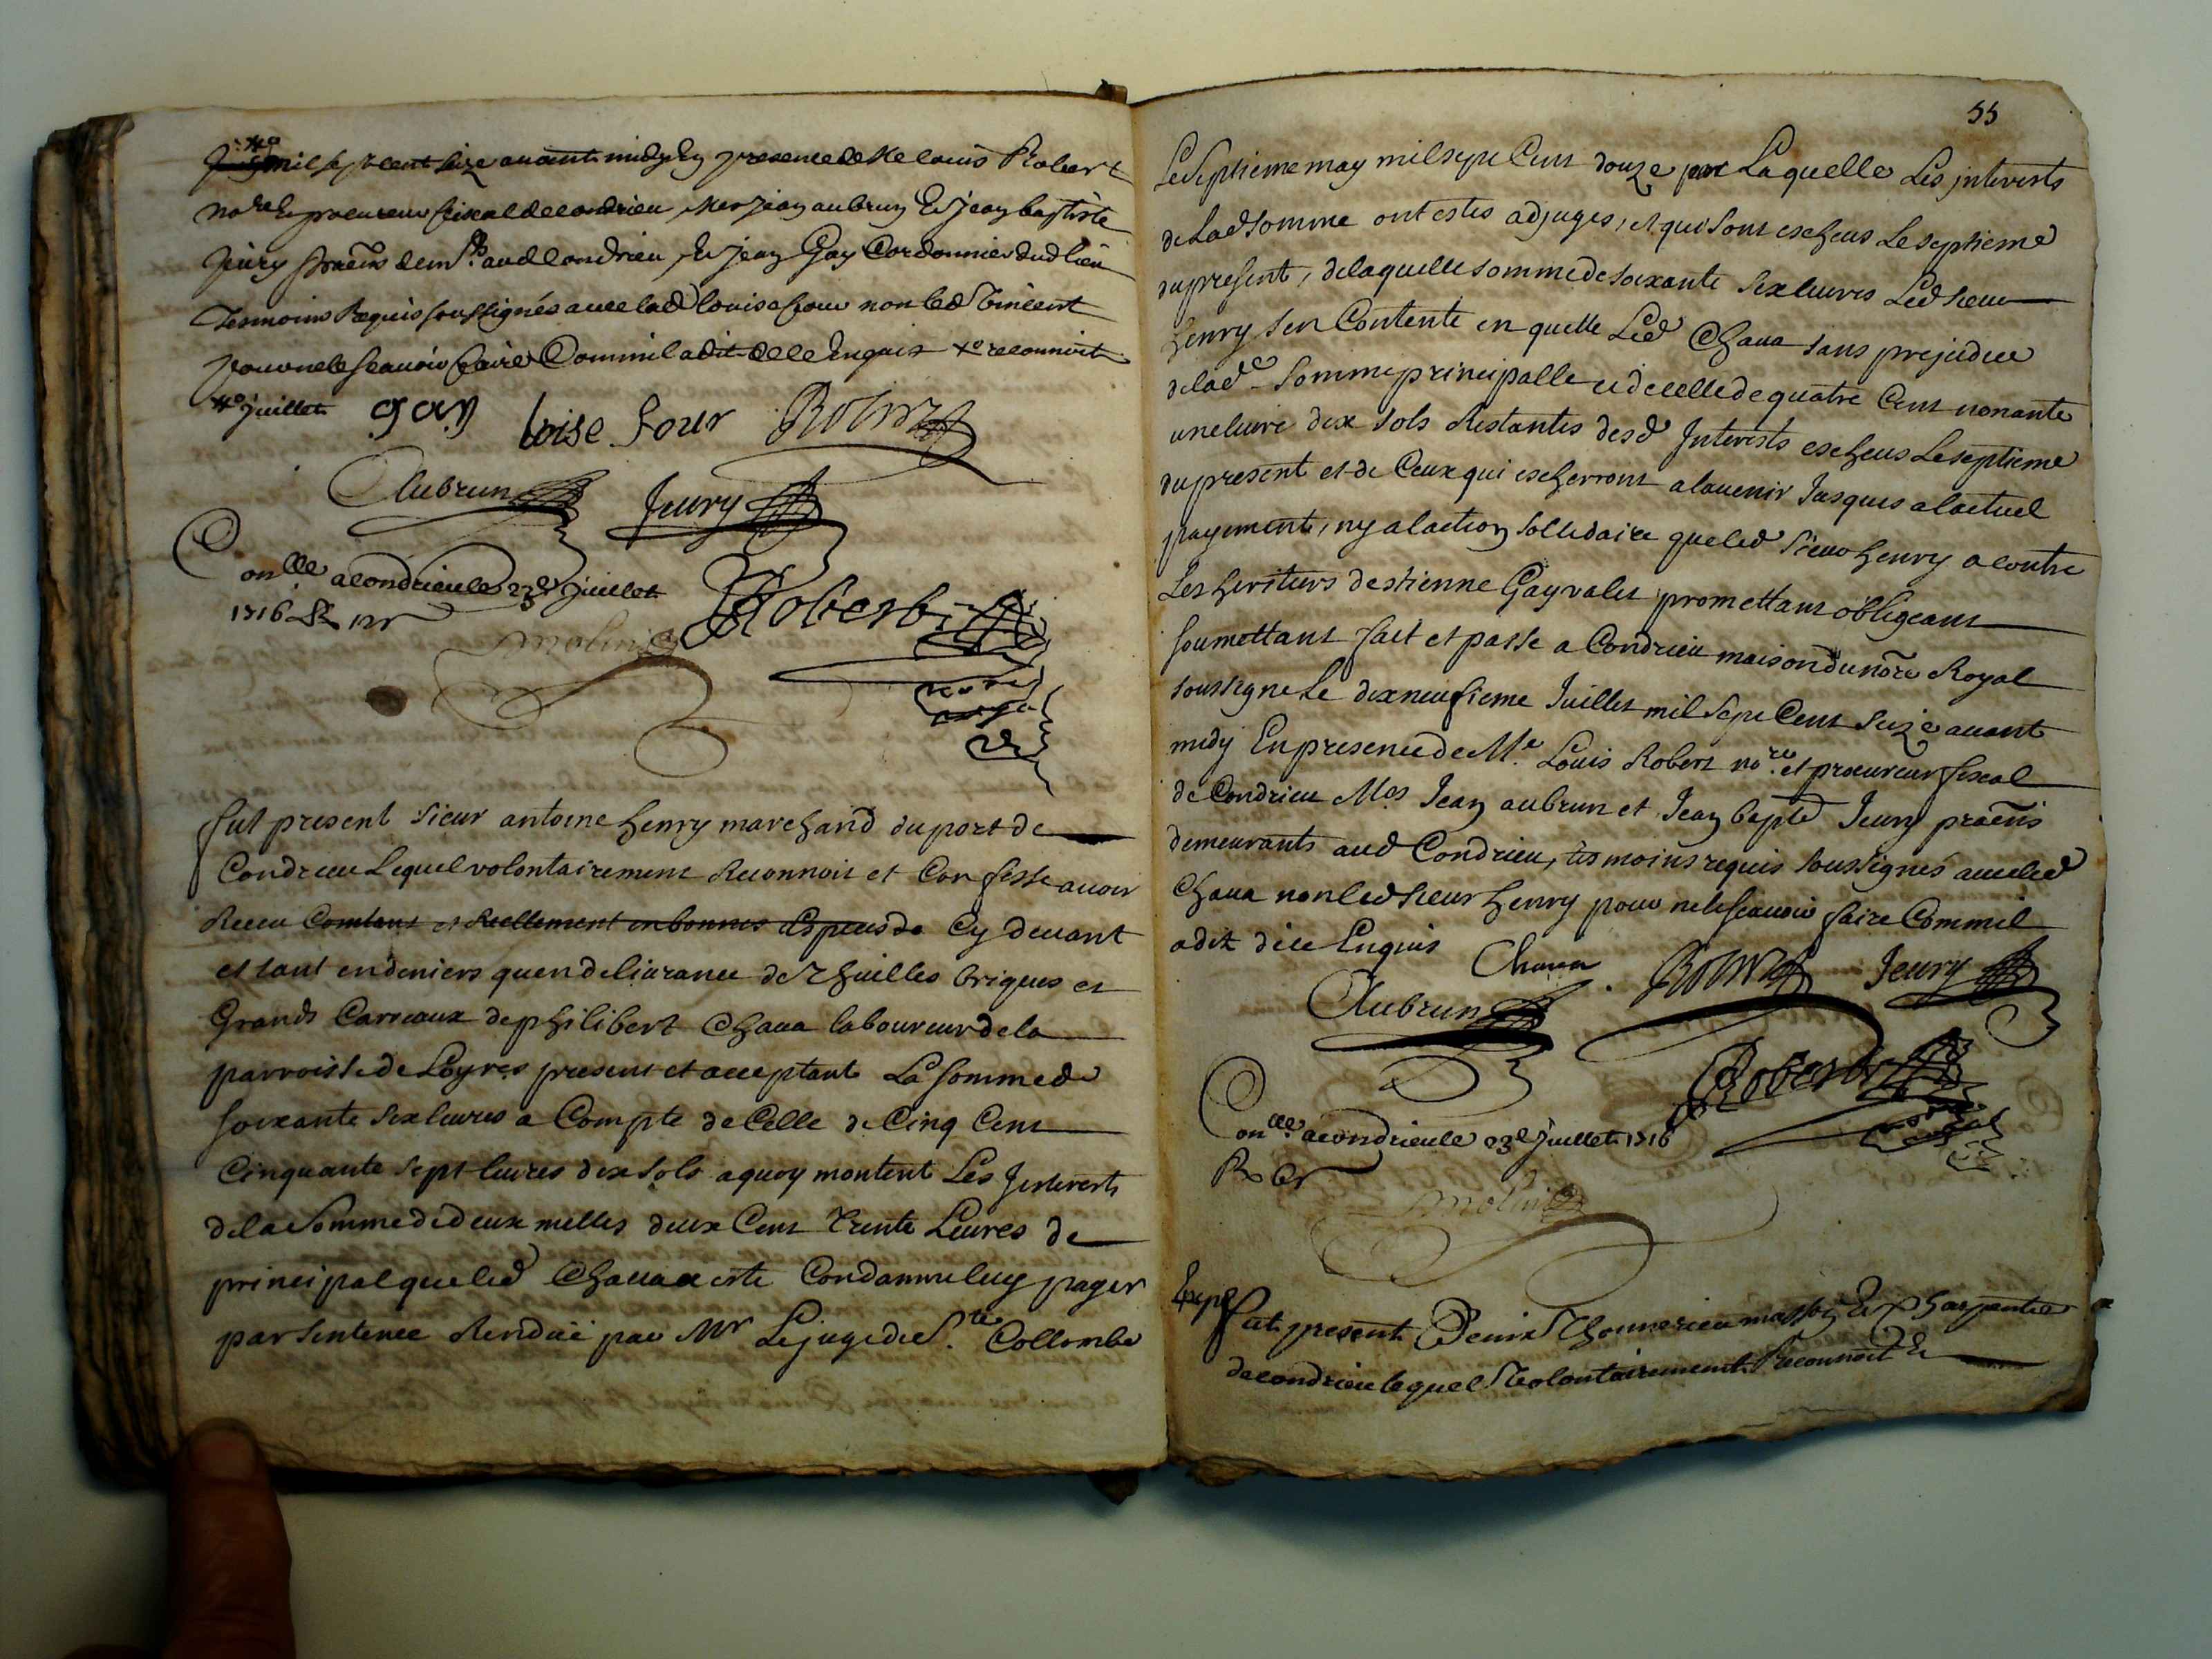 mil sept cent seize avant midy En presence de Me louis Robert
nore & procureur fiscal de condrieu, Mes jean aubrun & jean baptiste
Jeury praēns dem.ts aud Condrieu, & jean Gay Cordonnier dud lieu
Tesmoins Requis soussignés avec lad louise four non led Vincent
pour ne le scauoir faire Comm'il a dit de ce Enquis xo reconnoit
xo juillet gay loise four Robert
Aubrun Jeury
Conlle a condrieu le 23e Juillet
1716 Rx 12s
Robert
molin
nore
royal
fut present sieur antoine henry marchand du port de
Condrieu Lequel volontairement Reconnois et Confesse auoir
Receu Contant et Reellement en bonnes Espeus de Cy deuant
et tant en deniers quen deliurance de Thuilles briques et
Grands Carreaux de philibert Chaua laboureur de la
parroisse de Loyres present et acceptant La somme de
soixante six liures a Compte de Celle de Cinq Cent
Cinquante sept liures dix sols a quoy montent Les Interests
de la somme de deux milles deux Cent Trente Liures de
principal que led Chaua a esté Condamné luy payer
par sentence Rendüe par Mr Le juge de Ste Collombe
55
Le Septieme may mil sept Cent douze par Laquelle Les interests
de Lad somme ont estes adjugés, et qui sont escheus Le septieme
du present, de laquelle somme de soixante six liures Led sieur
henry s'en Contente en quitte Led Chaua sans prejudice
de lade somme principalle et de celle de quatre Cent nonante
une liure dix sols Restantes desd Interests escheus Le septieme
du present et de Ceux qui escherront a lauenir Jusques a lactuel
payement, ny a laction sollidaire que led sieur henry a contre
Les heritiers destienne Gay valet promettant obligeant
soumettant fait et passé a Condrieu maison du nore Royal
soussigné Le dixneufieme Juillet mil sept Cent Seize auant
midy En presence de Me. Louis Robert nore et procureur fiscal
de Condrieu Mes Jean aubrun et Jean bapte Jeury praēns
demeurants aud Condrieu, tesmoins requis soussignés auec led
Chaua non led sieur henry pour ne le scauoir faire Comm'il
a dit de ce Enquis Chaua Robert Jeury
Aubrun
Robert
Conlle a condrieu le 23e Juillet 1716
Rx
molin
nore royal
Exp
fut present Denis Thoumerieu masson & Charpentier
de condrieu lequel Volontairement Reconnoit &